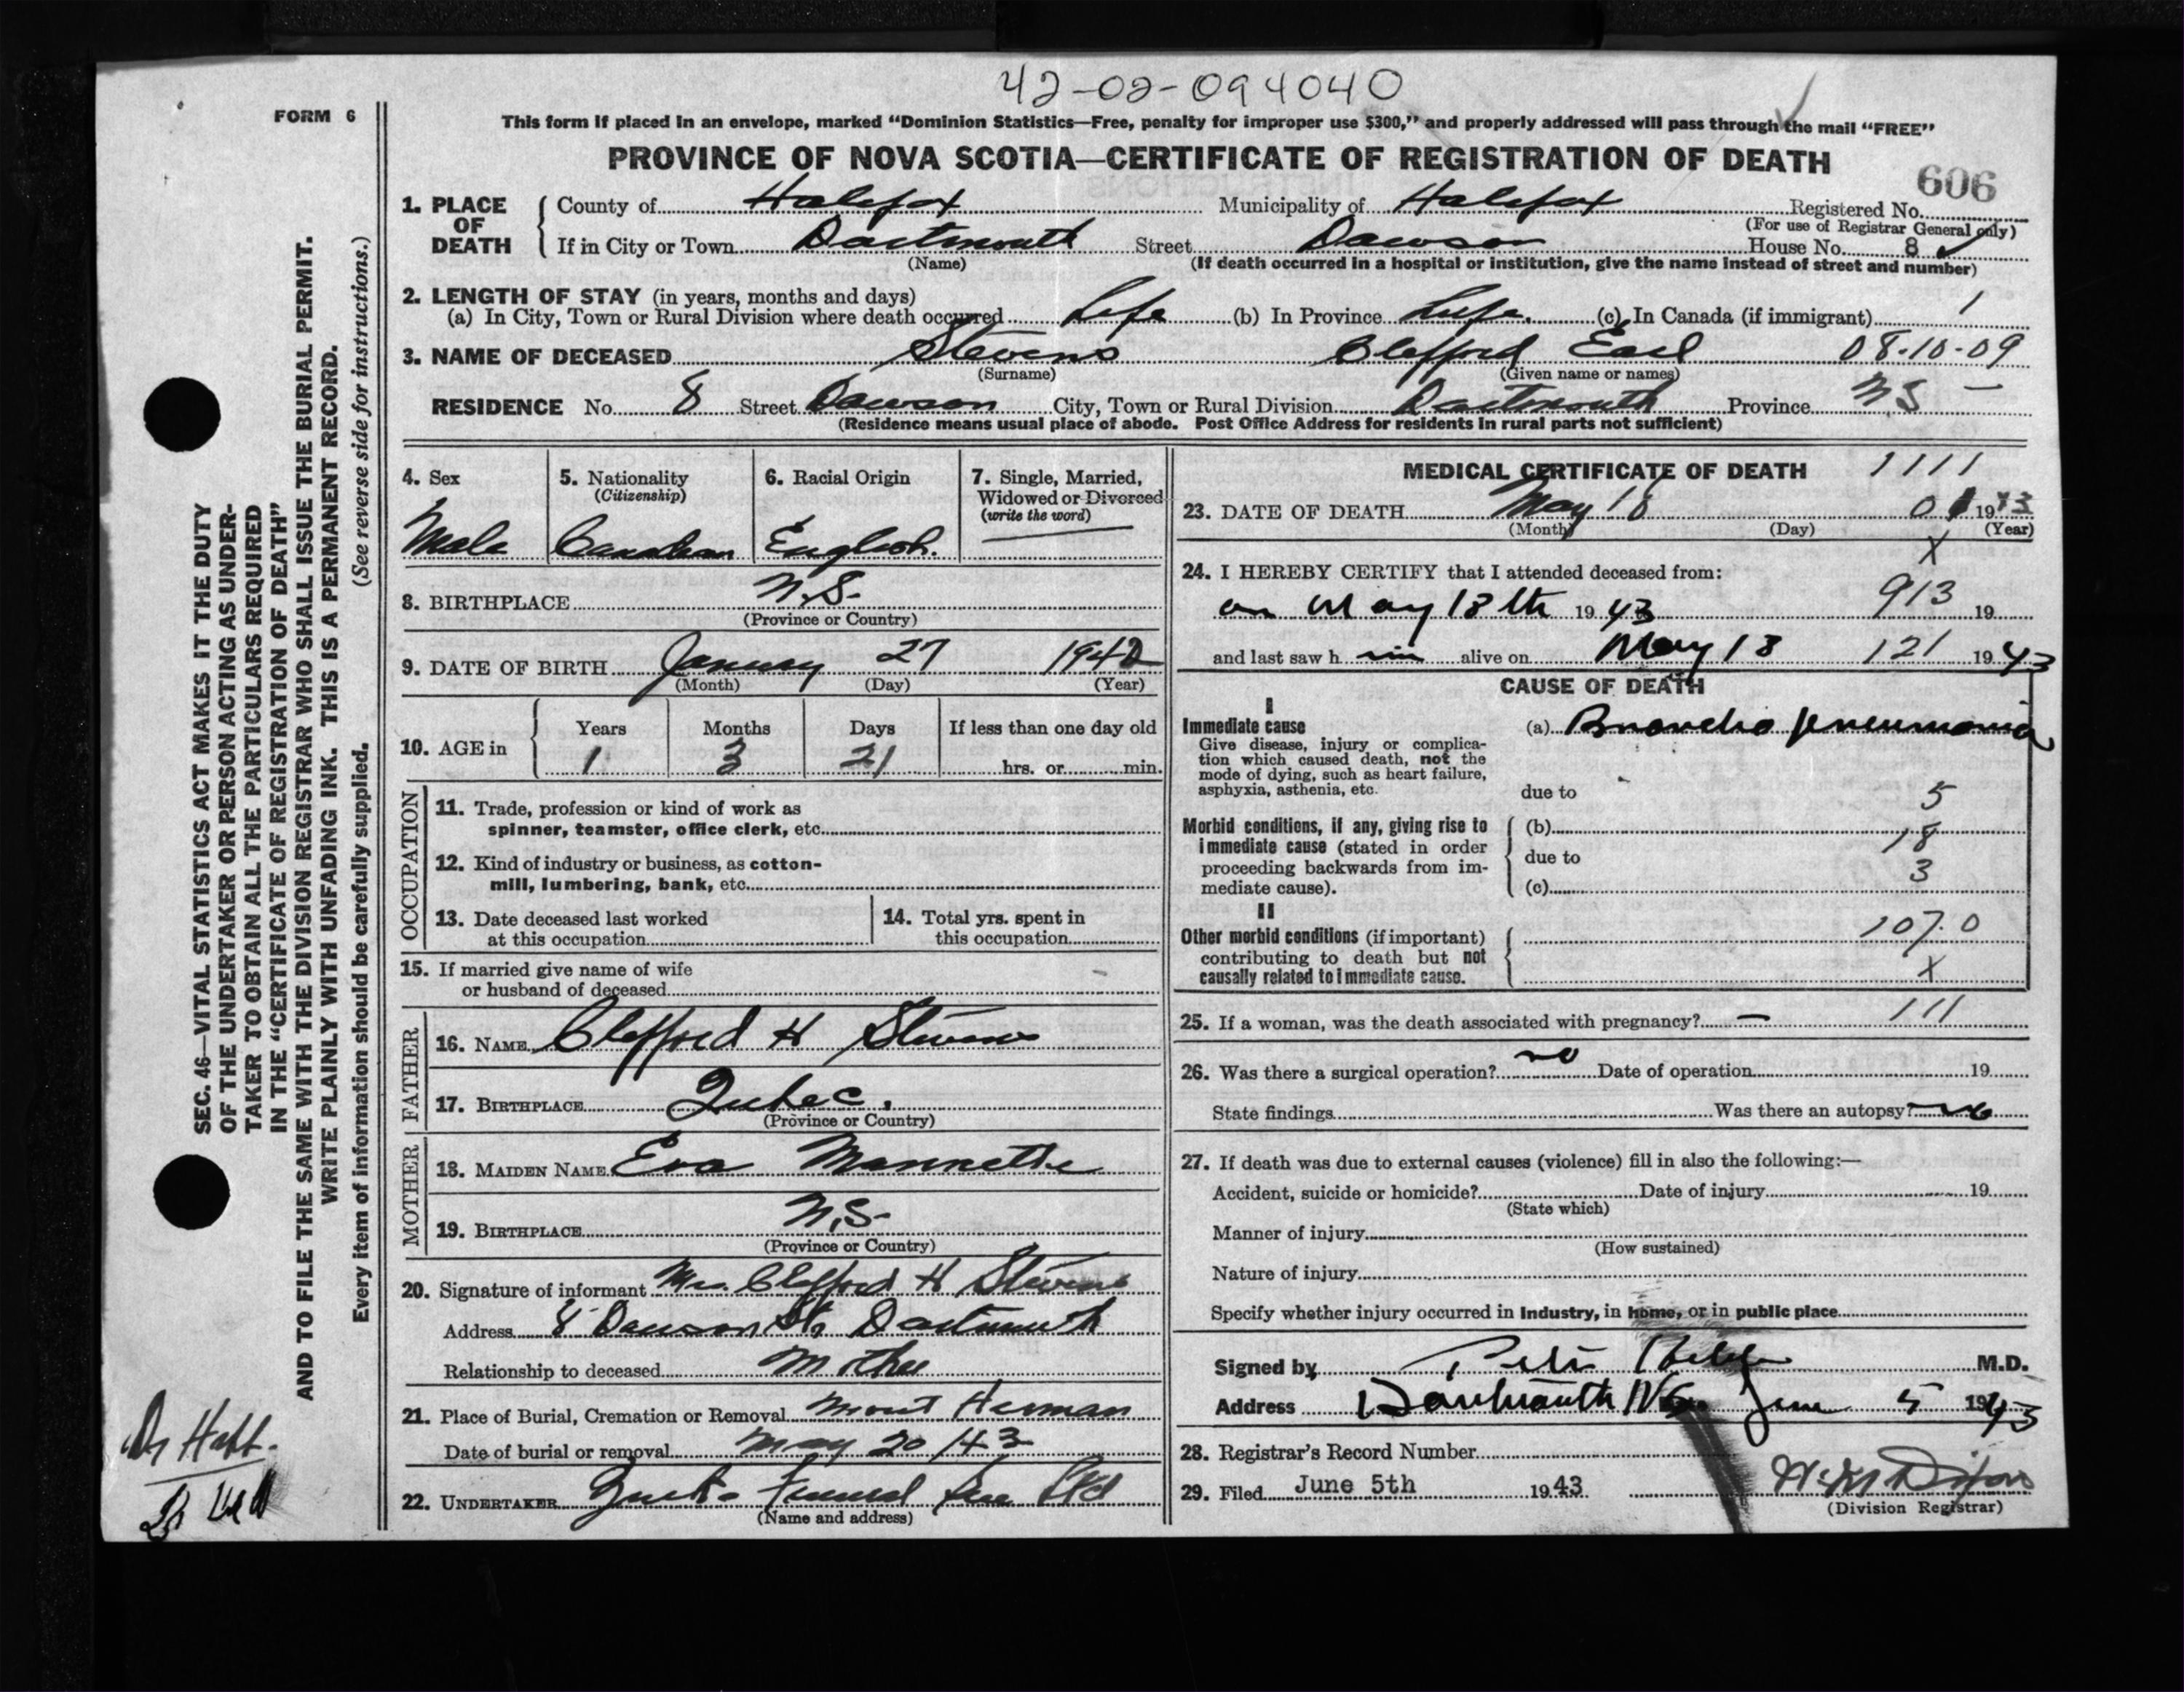 42-02-094040
FORM 6
This form if placed in an envelope, marked “Dominion Statistics—Free, penalty for improper use $300,” and properly addressed will pass through the mail “FREE”
PROVINCE OF NOVA SCOTIA—CERTIFICATE OF REGISTRATION OF DEATH
606
1. PLACE OF DEATH
County of Halifax Municipality of Halifax Registered No.
(For use of Registrar General only)
If in City or Town Dartmouth Street Dawson House No. 8
(Name) (If death occurred in a hospital or institution, give the name instead of street and number)
2. LENGTH OF STAY (in years, months and days)
(a) In City, Town or Rural Division where death occurred Life (b) In Province Life. (c) In Canada (if immigrant)
3. NAME OF DECEASED Stevens Clifford Earl 08-10-09
(Surname) (Given name or names)
RESIDENCE No. 8 Street Dawson City, Town or Rural Division Dartmouth Province N S
(Residence means usual place of abode. Post Office Address for residents in rural parts not sufficient)
4. Sex
Male
5. Nationality
(Citizenship)
Canadian
6. Racial Origin
English.
7. Single, Married,
Widowed or Divorced
(write the word)
8. BIRTHPLACE N.S.
(Province or Country)
9. DATE OF BIRTH January 27 1942
(Month) (Day) (Year)
10. AGE in
Years Months Days If less than one day old
1 3 21 hrs. or min.
OCCUPATION
11. Trade, profession or kind of work as
spinner, teamster, office clerk, etc.
12. Kind of industry or business, as cotton-
mill, lumbering, bank, etc.
13. Date deceased last worked
at this occupation
14. Total yrs. spent in
this occupation
15. If married give name of wife
or husband of deceased
FATHER
16. NAME Clifford H Stevens
17. BIRTHPLACE Quebec.
(Province or Country)
MOTHER
18. MAIDEN NAME Eva Mannette
19. BIRTHPLACE N.S.
(Province or Country)
20. Signature of informant Mrs. Clifford H Stevens
Address 8 Dawson St, Dartmouth
Relationship to deceased Mother
21. Place of Burial, Cremation or Removal Mount Herman
Date of burial or removal May 20/43
22. UNDERTAKER Funeral Ltd
(Name and address)
MEDICAL CERTIFICATE OF DEATH 1111
23. DATE OF DEATH May 18 0 1943
(Month) (Day) (Year)
X
24. I HEREBY CERTIFY that I attended deceased from:
on May 18th 19 43 913 19
and last saw h im alive on May 18 121 19 43
CAUSE OF DEATH
I
Immediate cause
Give disease, injury or complica-
tion which caused death, not the
mode of dying, such as heart failure,
asphyxia, asthenia, etc.
(a) Broncho pneumonia
due to 5
Morbid conditions, if any, giving rise to
immediate cause (stated in order
proceeding backwards from im-
mediate cause).
(b) 18
due to
(c) 3
II
Other morbid conditions (if important)
contributing to death but not
causally related to immediate cause.
107.0
X
25. If a woman, was the death associated with pregnancy? — 111
26. Was there a surgical operation? no Date of operation 19
State findings Was there an autopsy? no
27. If death was due to external causes (violence) fill in also the following:—
Accident, suicide or homicide? Date of injury 19
(State which)
Manner of injury
(How sustained)
Nature of injury
Specify whether injury occurred in industry, in home, or in public place
Signed by M.D.
Address Dartmouth N.S. June 5 1943
28. Registrar's Record Number
29. Filed June 5th 1943
(Division Registrar)
SEC. 46—VITAL STATISTICS ACT MAKES IT THE DUTY
OF THE UNDERTAKER OR PERSON ACTING AS UNDER-
TAKER TO OBTAIN ALL THE PARTICULARS REQUIRED
IN THE “CERTIFICATE OF REGISTRATION OF DEATH”
AND TO FILE THE SAME WITH THE DIVISION REGISTRAR WHO SHALL ISSUE THE BURIAL PERMIT.
WRITE PLAINLY WITH UNFADING INK. THIS IS A PERMANENT RECORD.
Every item of information should be carefully supplied. (See reverse side for instructions.)